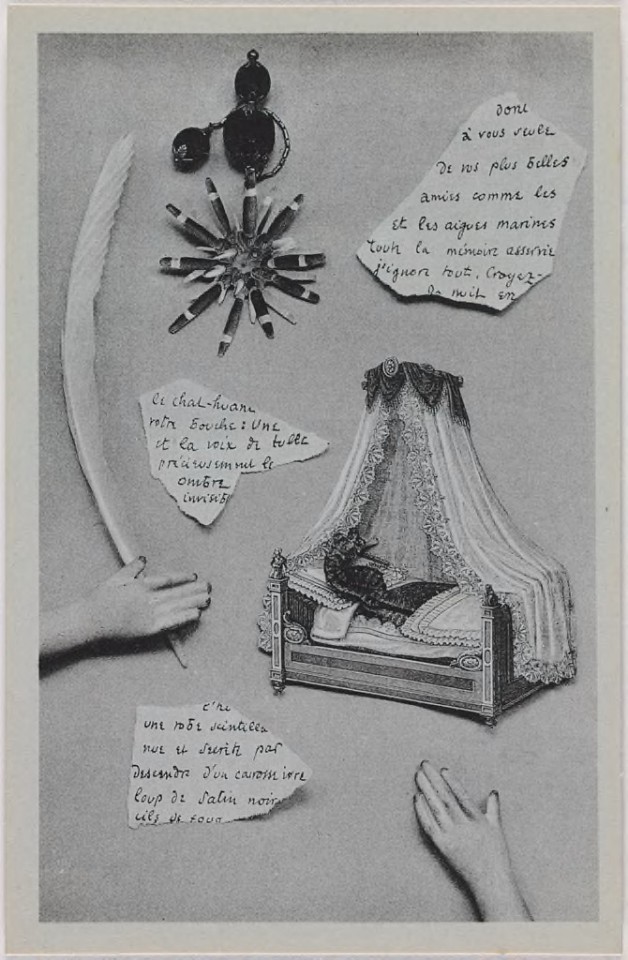 dont
à vous seule
de vos plus belles
amies comme les
et les aigues marines
toute la mémoire asservie
j'ignore tout. Croyez-
la nuit en
le chat-huant
votre bouche : Une
et la voix de tulle
précieusement le
ombre
invisib
une robe scintilla
nue et secrète par
descendre d'un carosse ivre
loup de satin noir
cils de